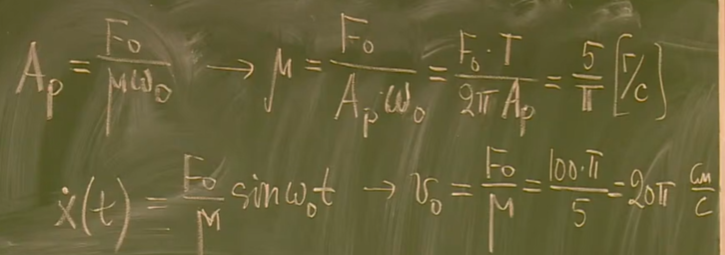 Aₚ = F₀/(μω₀) → μ = F₀/(Aₚ·ω₀) = F₀·T/(2πAₚ) = 5/π [г/с]
ẋ(t) = F₀/μ sinω₀t → v₀ = F₀/μ = 100·π/5 = 20π см/с